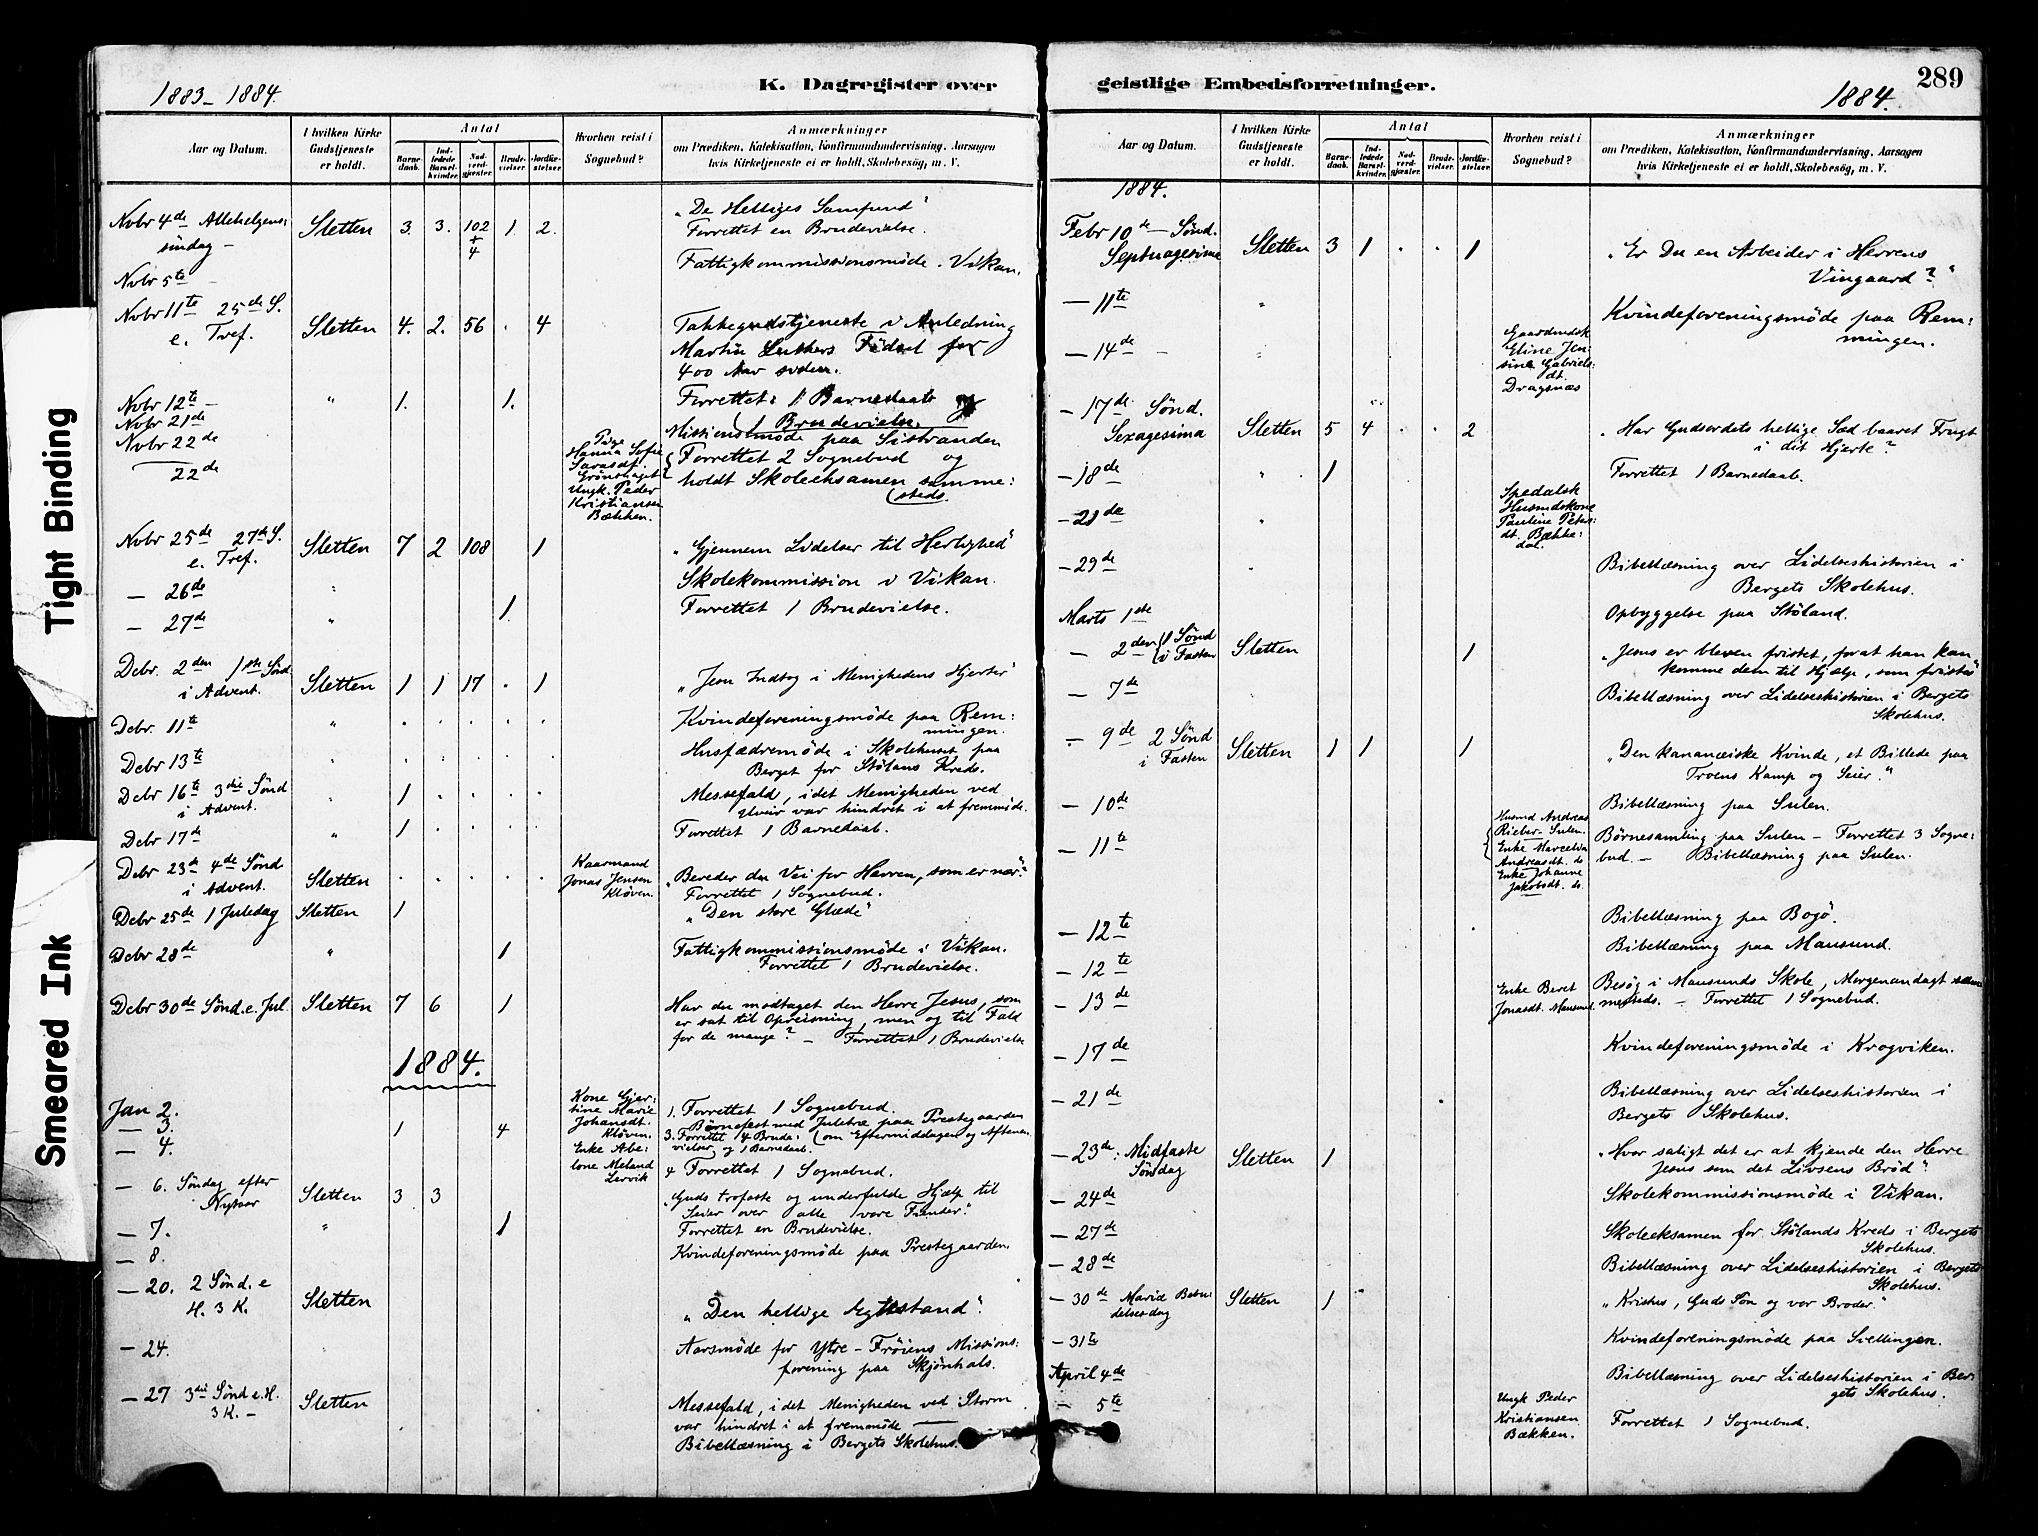 1883-1884.
K. Dagregister over
Aar og Datum.
I hvilken Kirke Gudstjeneste er holdt.
Antal
Barne-daab.
Ind-ledede Barsel-kvinder.
Nad-verd-gjæster.
Brude-vielser.
Jordfæ-stelser.
Hvorhen reist i Sognebud?
Anmærkninger
om Prædiken, Katekisation, Konfirmandundervisning, Aarsagen
hvis Kirketjeneste ei er holdt, Skolebesøg, m. V.
Novbr 4de Allehelgens: Sletten 3. 3. 102 1. 2. „De Helliges Samfund"
søndag - + 4 Forrettet en Brudevielse.
Novbr 5te - Fattigkommissionsmøde. Vikan.
Novbr 11te 25de S. Sletten 4. 2. 56 . 4 Takkegudstjeneste i Anledning
e. Tref. Martin Luthers Fødsel for
400 Aar siden.
Novbr 12te - " 1. 1. Forrettet: 1 Barnedaab og
1 Brudevielse.
Novbr 21de Missionsmøde paa Sistranden
Novbr 22de Pige Hanna Sofie Forrettet 2 Sognebud og
22de holdt Skoleeksamen samme:
steds.
Ungk. Peder
Kristiansen
Bækken.
Novbr 25de 27de S. Sletten 7 2 108 1 „Gjennem Lidelser til Herlighed"
e. Tref.
- 26de " Skolekommission i Vikan.
- 27de " 1 Forrettet 1 Brudevielse.
Debr. 2den 1ste Sønd
i Advent. Sletten 1 1 17 . 1 „Jesu Indtog i Menighedens Hjerter"
Debr. 11te " Kvindeforeningsmøde paa Rem:
mingen.
Debr 13te " Husfædremøde i Skolehuset paa
Berget for Stølans Kreds.
Debr 16te 3die Sønd " 1 Messefald, idet Menigheden ved
i Advent. Uveir var hindret i at fremmøde.
Debr 17de " 1 Forrettet 1 Barnedaab.
Debr 23de 4de Sønd Kaarmand
i Advent. Sletten Jonas Jensen „Bereder den Vei for Herren, som er nær."
Kløven. Forrettet 1 Sognebud.
Debr 25de 1 Juledag Sletten 1 „Den store Glæde"
Debr 28de " 1 Fattigkommissionsmøde i Vikan.
Forrettet 1 Brudevielse.
Debr 30de Sønd. e. Jul Sletten 7 6 1 Har du modtaget den Herre Jesus, som
er sat til Opreisning, men og til Fald
for de mange? - Forrettet 1 Brudevielse
1884.
Jan 2. Kone Gjer: 1. Forrettet 1 Sognebud.
tine Marie Børnefest med Juletræ paa Prestegaarden
- 3. 1 4 Johansdt. 3. Forrettet 4 Brude: (om Eftermiddagen og Aftenen.
Kløven. vielser og 1 Barnedaab.
- 4. Enke Abe:
lone Meland 4 Forrettet 1 Sognebud.
Lervik
- 6. Søndag efter Sletten 3 3 „Guds trofaste og underfulde Hjælp til
Nytaar Seier over alle vore Fiender."
- 7. " 1 Forrettet en Brudevielse.
- 8. Kvindeforeningsmøde paa Prestegaarden.
- 20. 2 Sønd. e
H. 3 K. Sletten „Den hellige Egtestand".
- 24. Aarsmøde for Ytre-Frøiens Missions:
forening paa Skjønhals.
- 27 3die Sønd e. H. Sletten Messefald, idet Menigheden ved Storm
3 K. - var hindret i at fremmøde
Bibellæsning i Bergets Skolehus.
geistlige Embedsforretninger.
1884.
289
Aar og Datum.
I hvilken Kirke Gudstjeneste er holdt.
Antal
Barne-daab.
Ind-ledede Barsel-kvinder.
Nad-verd-gjæster.
Brude-vielser.
Jordfæ-stelser.
Hvorhen reist i Sognebud?
Anmærkninger
om Prædiken, Katekisation, Konfirmandundervisning, Aarsagen
hvis Kirketjeneste ei er holdt, Skolebesøg, m. V.
1884.
Febr 10de - Sønd.
Septuagesima Sletten 3 1 . . 1 „Er Du en Arbeider i Herrens
Vingaard?"
- 11te " Kvindeforeningsmøde paa Rem:
mingen.
- 14de - " Eline Jen:
sine Gabriels
dt.
Dragsnæs
- 17de Sønd.
Sexagesima Sletten 5 4 . . 2 „Har Gudsordets hellige Sæd baaret Frugt
i dit Hjerte?
- 18de " 1 Forrettet 1 Barnedaab.
- 21de " Spedalsk
Husmdskone
Pauline Peters:
dt. Bække:
dal.
- 29de " Bibellæsning over Lidelseshistorien i
Bergets Skolehus.
Marts 1ste Opbyggelse paa Støland.
- 2den 1 Sønd
i Fasten Sletten 1 „Jesus er bleven fristet, forat han kan
komme dem til Hjælp, som fristes"
- 7de Bibellæsning over Lidelseshistorien i Bergets
Skolehus.
- 9de 2 Sønd
i Fasten Sletten 1 1 1 „Den kananæiske Kvinde, et Billede paa
Troens Kamp og Seier."
- 10de Bibellæsning paa Sulen.
- 11te Husmd Andreas
Rieber-Sulen. Børnesamling paa Sulen - Forrettet 3 Sogne:
Enke Marcelia bud. - Bibellæsning paa Sulen.
Andreasdt. ds
Enke Johanne
Jakobsdt. ds.
- 12te Bibellæsning paa Bogø.
- 12te Bibellæsning paa Mausund.
- 13de Enke Beret Besøg i Mausunds Skole, Morgenandagt sam
Jonasdt. Mausund mesteds. - Forrettet 1 Sognebud.
- 17de Kvindeforeningsmøde i Krogviken.
- 21de Bibellæsning over Lidelseshistorien i
Bergets Skolehus.
- 23de: Midfaste
Søndag Sletten 1 „Hvor saligt det er at kjende den Herre
Jesus som det Livsens Brød".
- 24de Skolekommissionsmøde i Vikan.
- 27de Skoleeksamen for Stølands Kreds i Bergets
Skolehus.
- 28de Bibellæsning over Lidelseshistorien i Bergets
Skolehus.
- 30de Mariæ Bebu:
delsesdag Sletten 1 „Kristus, Guds Søn og vor Broder."
- 31te Kvindeforeningsmøde paa Svellingen.
April 4de Bibellæsning over Lidelseshistorien i Ber
gets Skolehus.
- 5te Ungk Peder
Kristiansen Forrettet 1 Sognebud.
Bækken.
Tight Binding
Smeared Ink